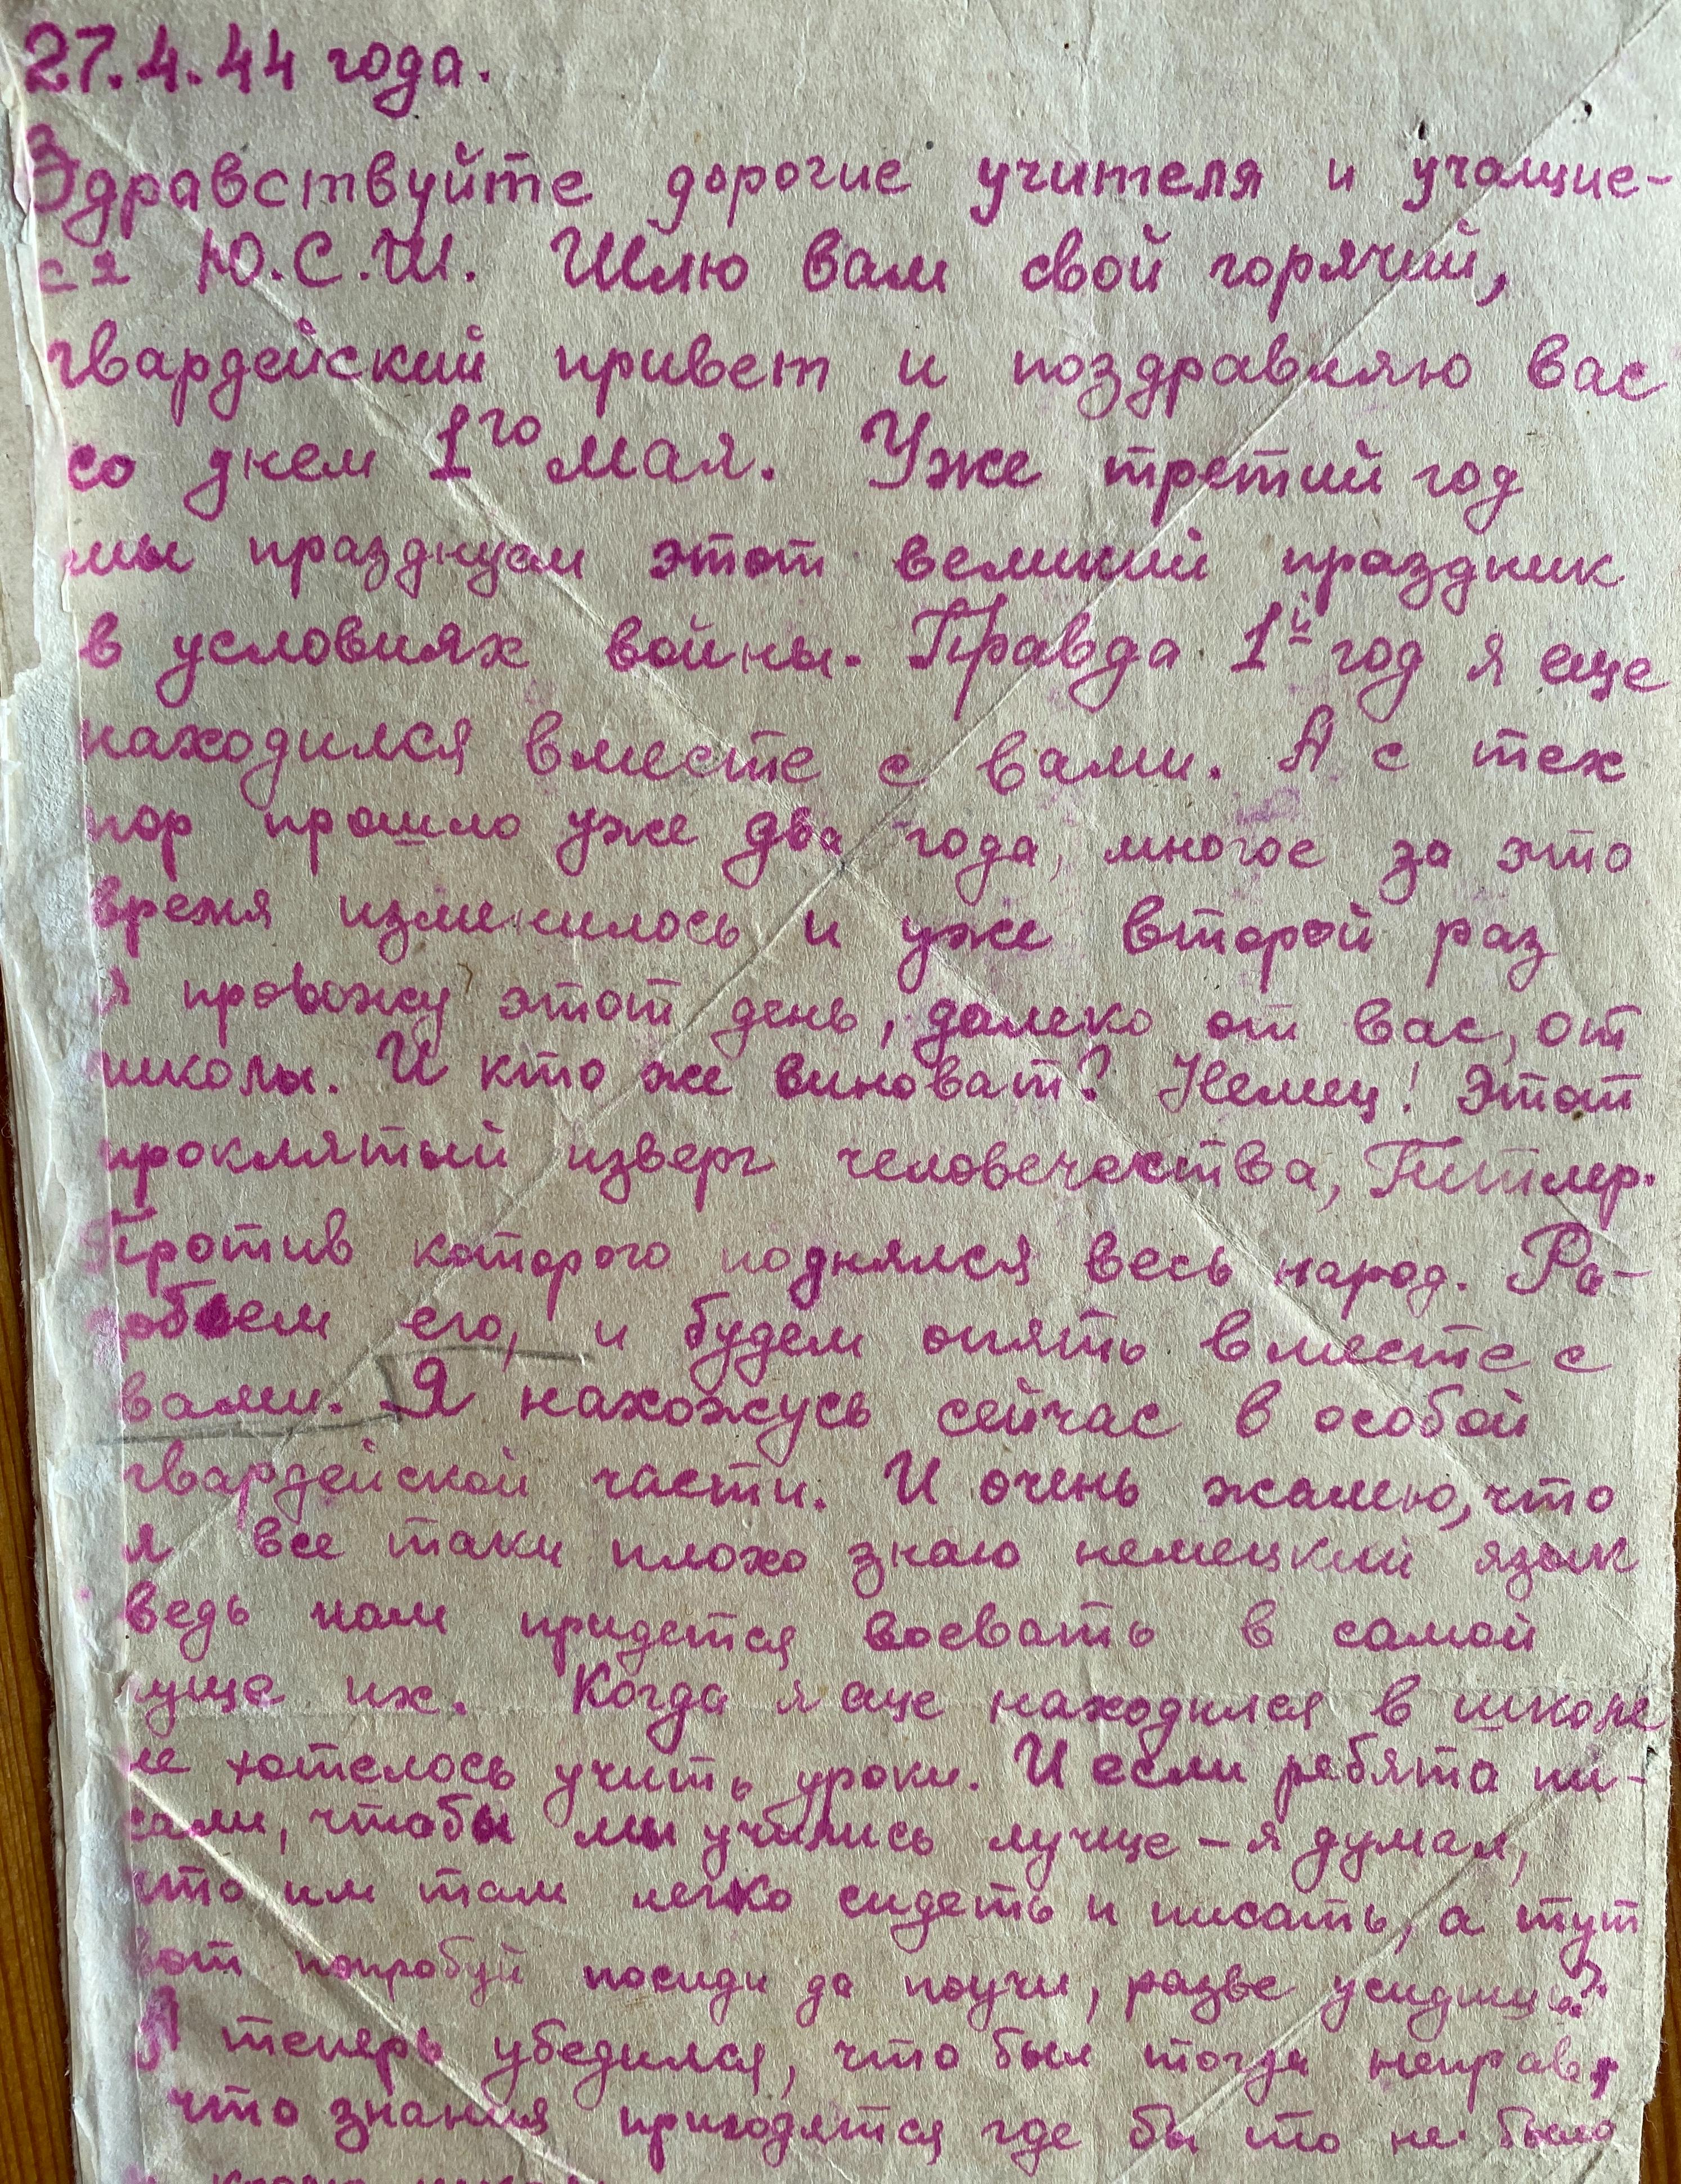 27.4.44 года.
Здравствуйте дорогие учителя и учащие-
ся Ю.С.Ш. Шлю вам свой горячий,
гвардейский привет и поздравляю вас
со днем 1го мая. Уже третий год
мы празднуем этот великий праздник
в условиях войны. Правда 1й год я еще
находился вместе с вами. А с тех
пор прошло уже два года, многое за это
время изменилось и уже второй раз
я провожу этот день, далеко от вас, от
школы. И кто же виноват? Немец! Этот
проклятый изверг человечества, Гитлер.
Против которого поднялся весь народ. Ра-
зобьем его, и будем опять вместе с
вами. Я нахожусь сейчас в особой
гвардейской части. И очень жалею, что
я все таки плохо знаю немецкий язык
ведь нам придется воевать в самой
гуще их. Когда я еще находился в школе
не хотелось учить уроки. И если ребята пи-
сали, чтобы мы учились лучще – я думал,
что им там легко сидеть и писать, а тут
вот попробуй посиди да поучи, разве усидишь?
Я теперь убедился, что был тогда неправ,
что знания пригодятся где бы то не было